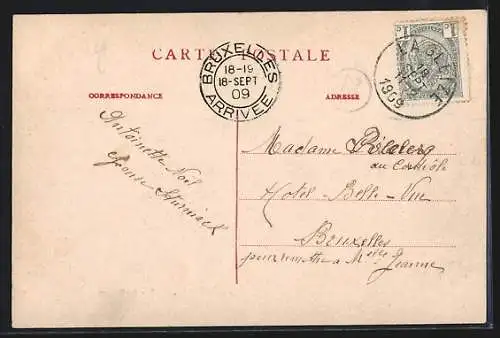 CARTE POSTALE
BRUXELLES
18-19
18-SEPT
09
ARRIVÉE
LA GLEIZE
1909
CORRESPONDANCE
ADRESSE
Antoinette Noël
Madame
au Contrôle
Hotel-Belle-Vue
Bruxelles
pour remettre a Melle Jeanne